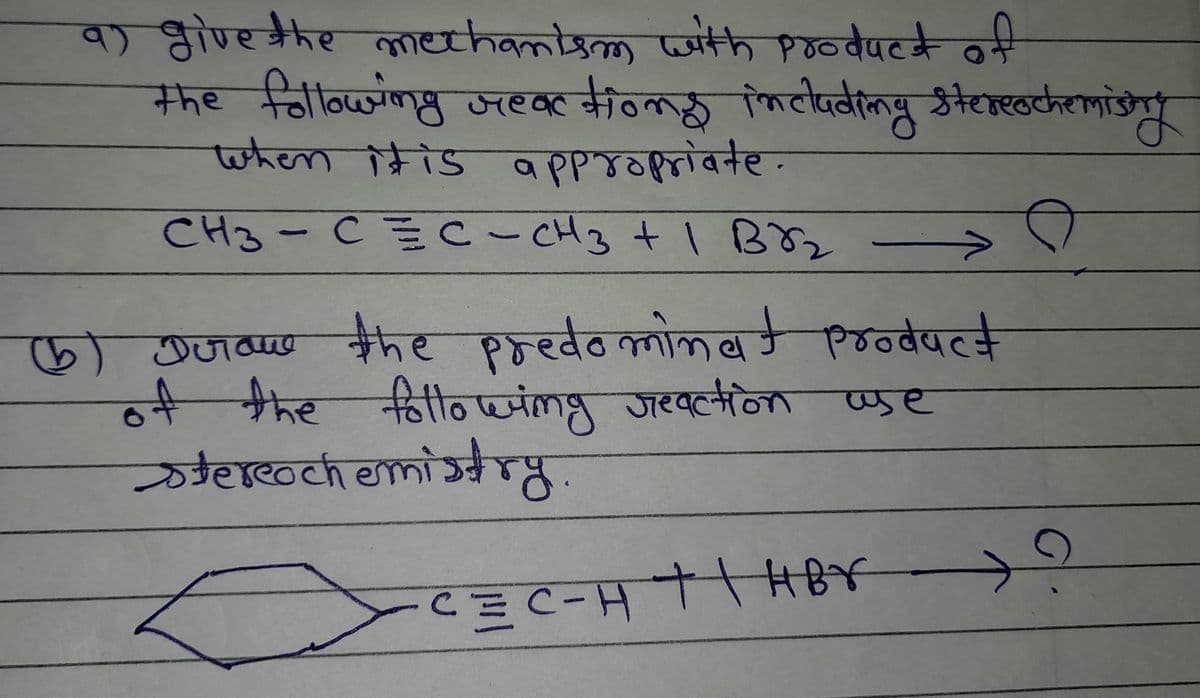 a) give the mechanism with product of
the following reactions including stereochemistry
when it is appropriate.
CH3 - C ≡ C - CH3 + 1 Br2 → ?
(b) Draw the predominat product
of the following reaction use
stereochemistry.
-C ≡ C-H + 1 HBr → ?